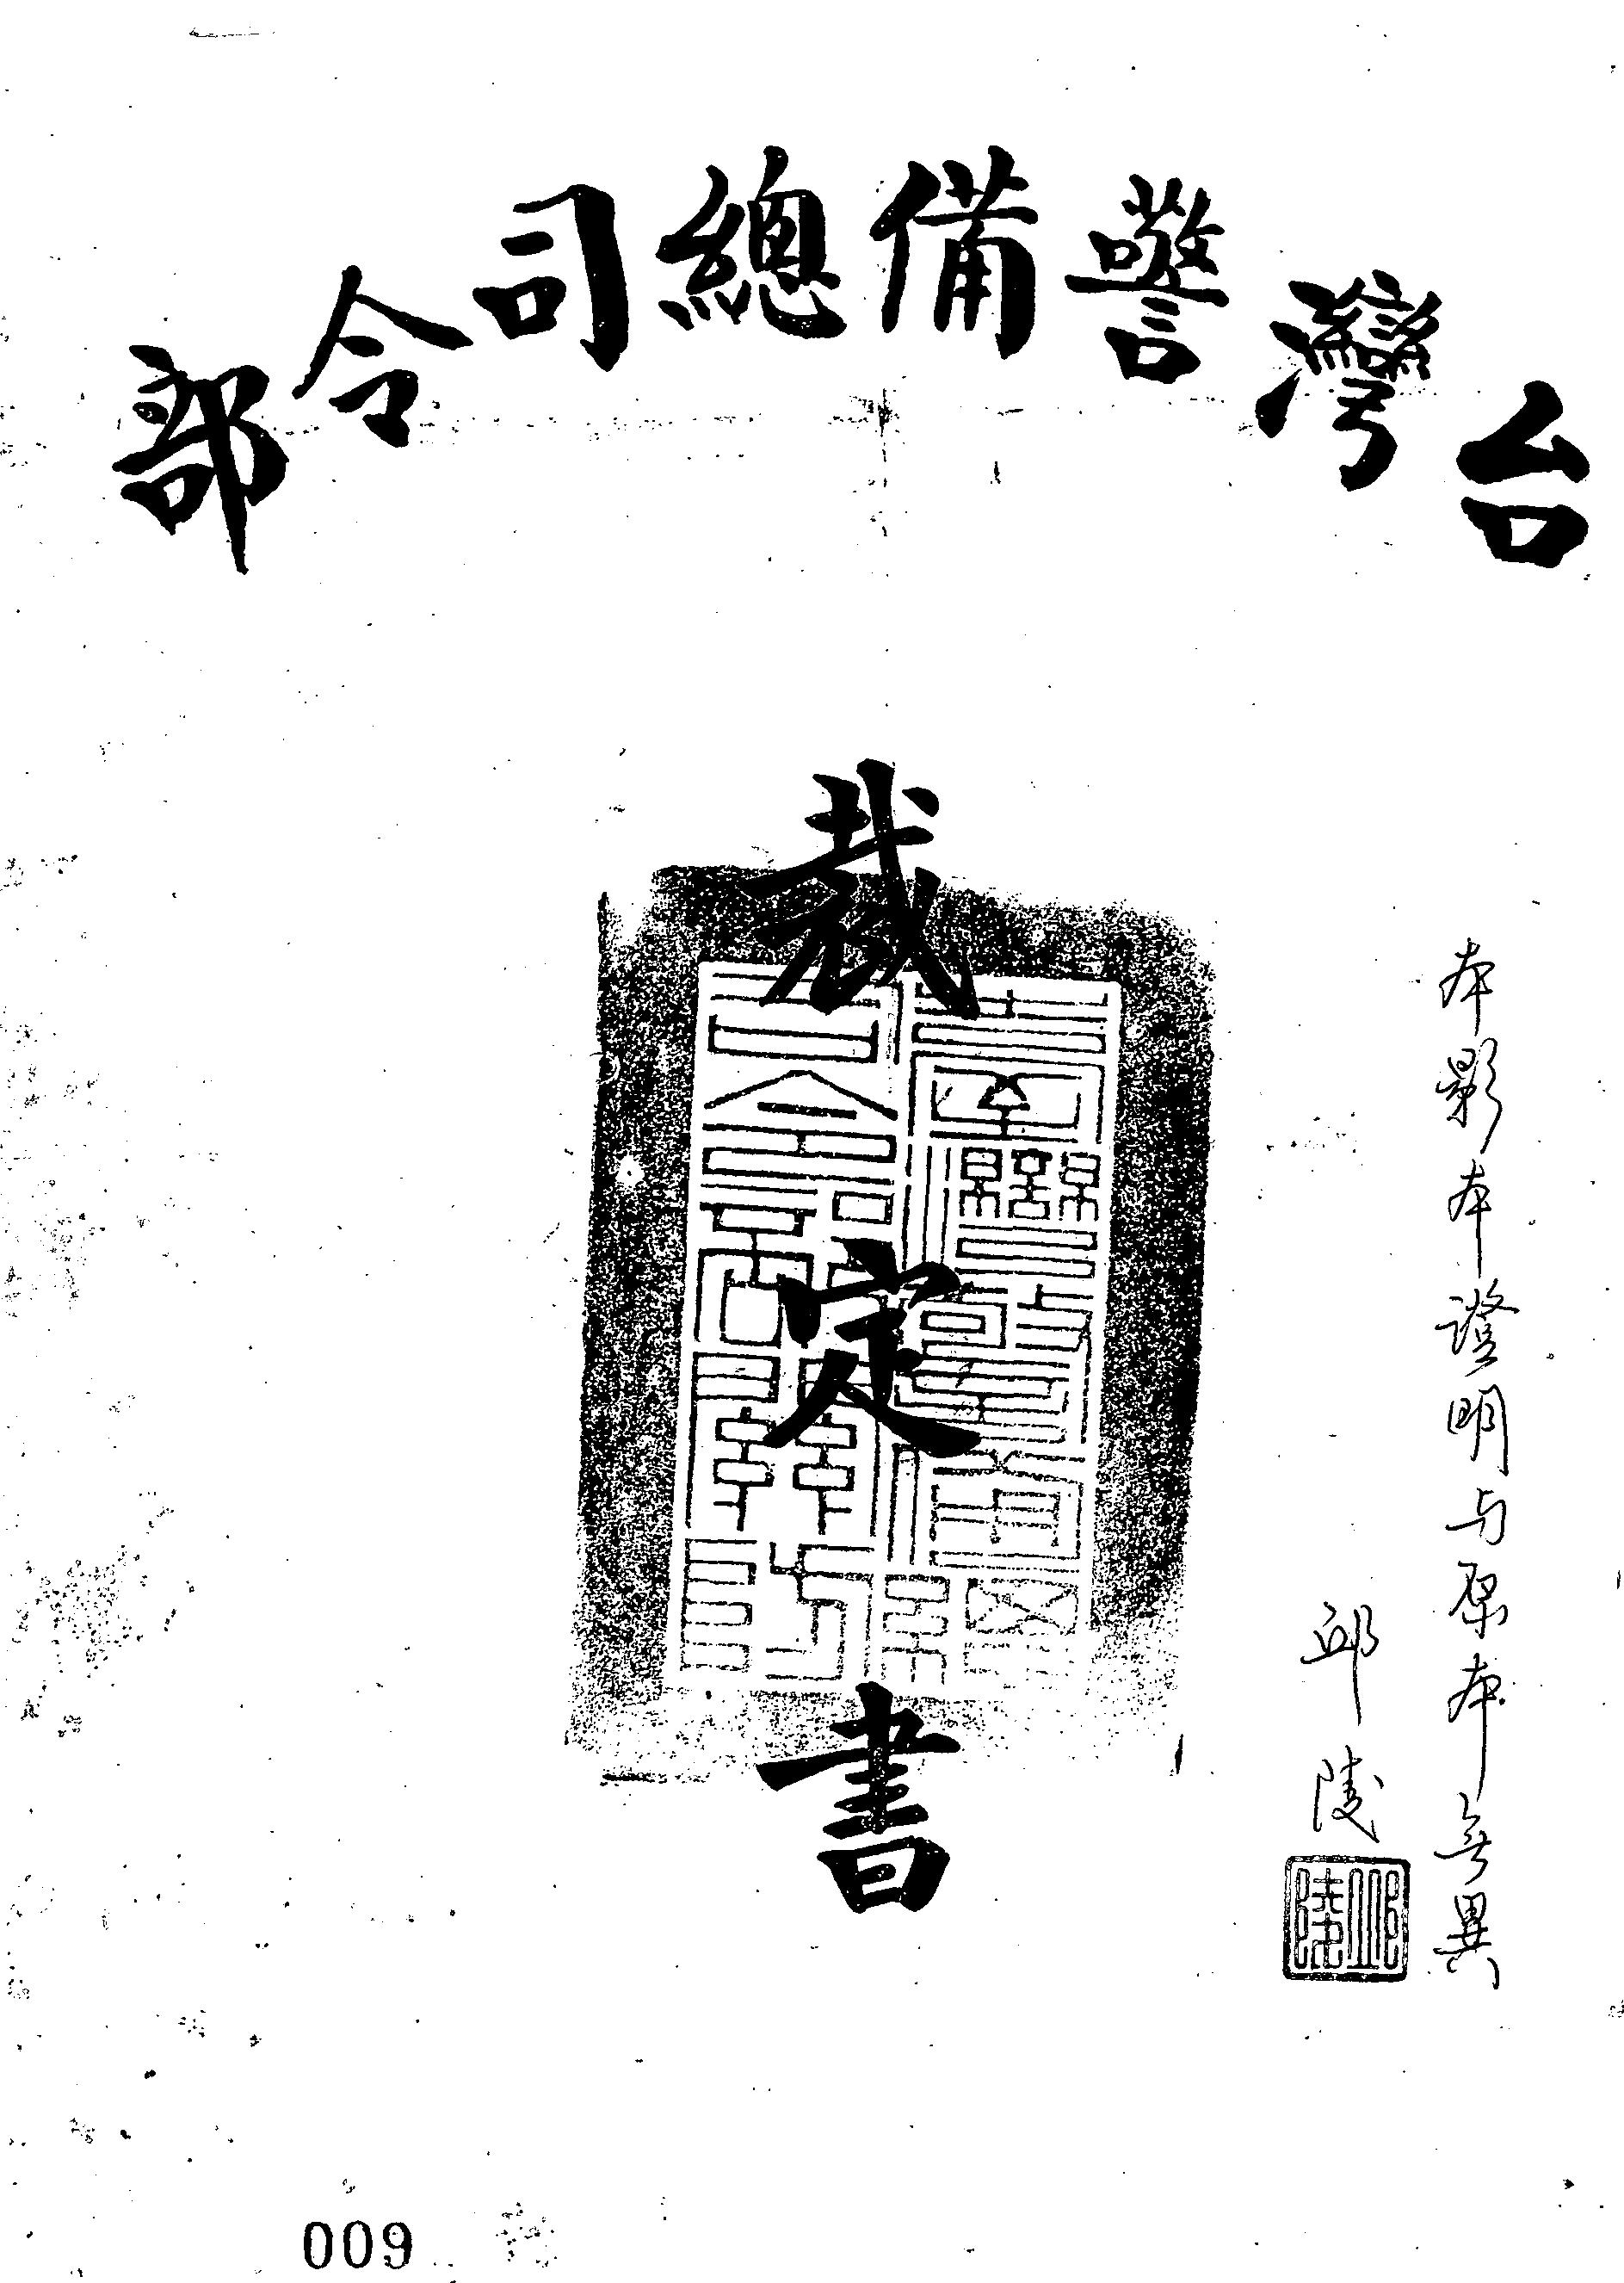 台灣警備總司令部
裁定書
本影本證明与原本無異
邱陵
009